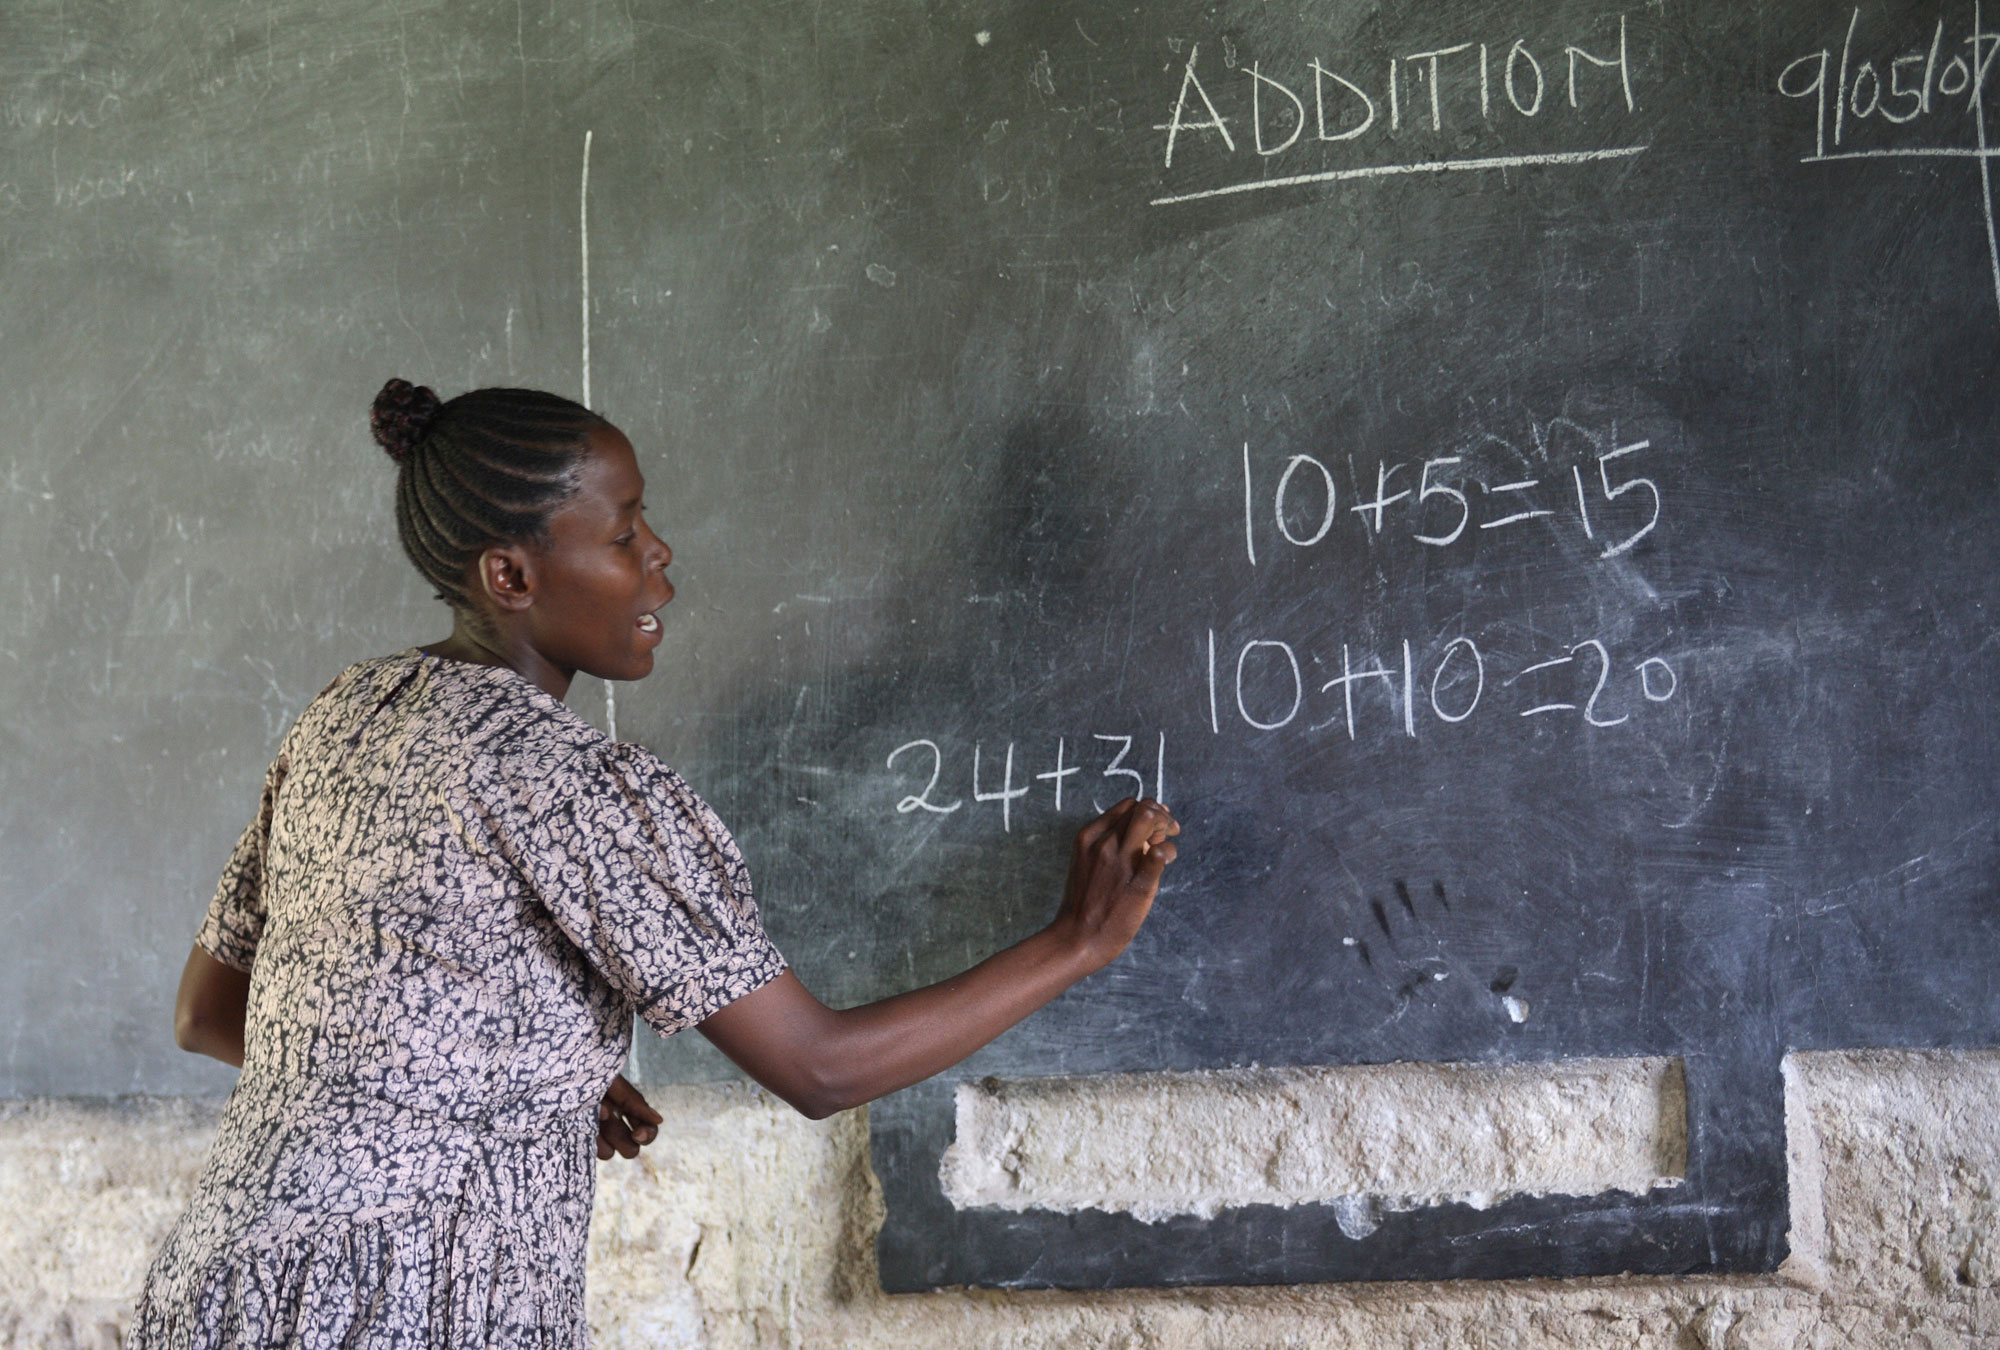 ADDITION
9/05/07
10+5=15
10+10=20
24+31